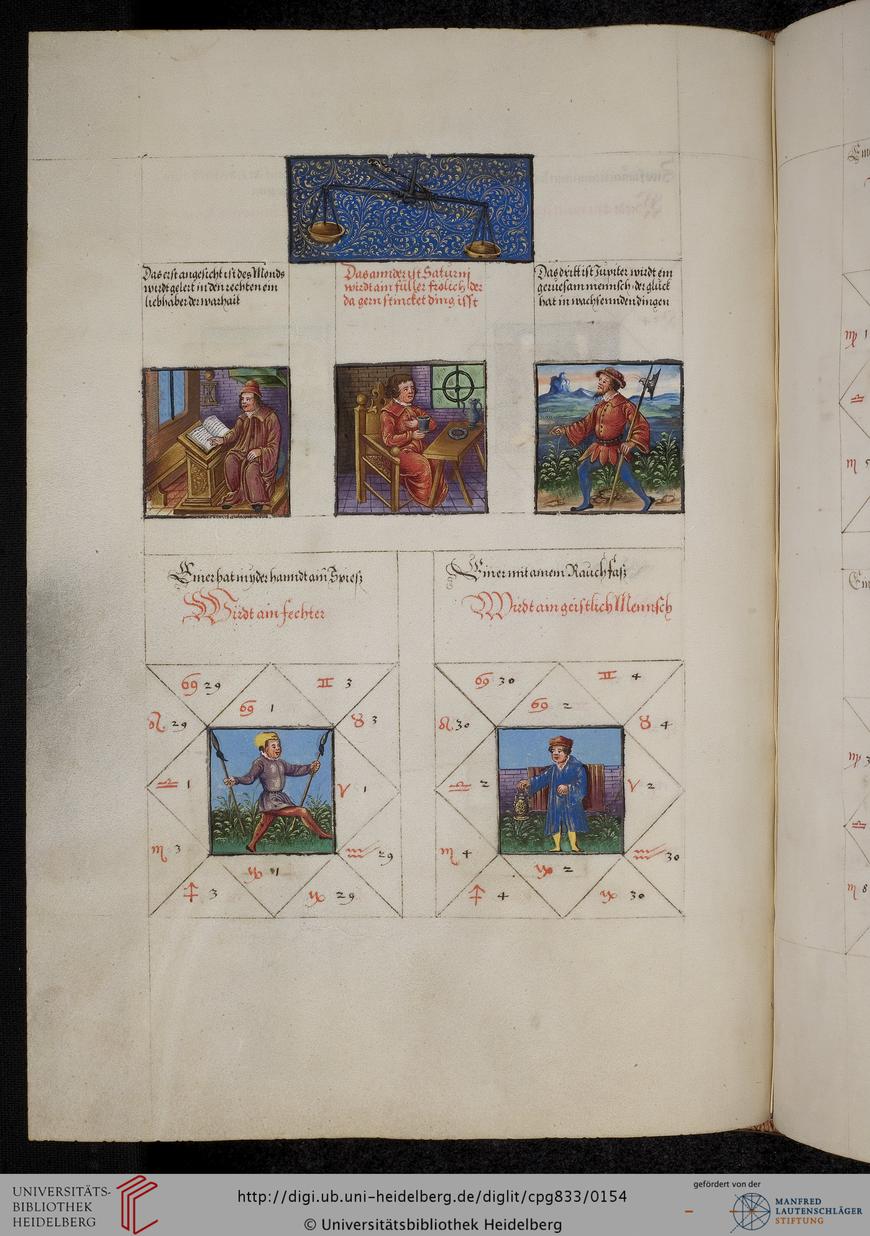 Das erst angesicht ist des Monds
wirdt gelert in den rechten ein
liebhaber der warhait
Das annder ist Saturni
wirdt ain füller frölich der
da gern stincket ding isst
Das dritt ist Jupiter wirdt ein
geruesam mennsch der glück
hat in wachsennden dingen
Einer hat in yder hanndt ain Spiess
Wirdt ain fechter
Einer mit ainem Rauchfass
Wirdt ain geistlich Mennsch
♋ 29 ♊ 3
♋ 1
♌ 29 ♉ 3
♎ 1 ♈ 1
♏ 3 ♒ 29
♑ 1
♐ 3 ♑ 29
♋ 30 ♊ 4
♋ 2
♌ 30 ♉ 4
♎ 2 ♈ 2
♏ 4 ♒ 30
♑ 2
♐ 4 ♑ 30
UNIVERSITÄTS-
BIBLIOTHEK
HEIDELBERG
http://digi.ub.uni-heidelberg.de/diglit/cpg833/0154
© Universitätsbibliothek Heidelberg
gefördert von der
MANFRED
LAUTENSCHLÄGER
STIFTUNG